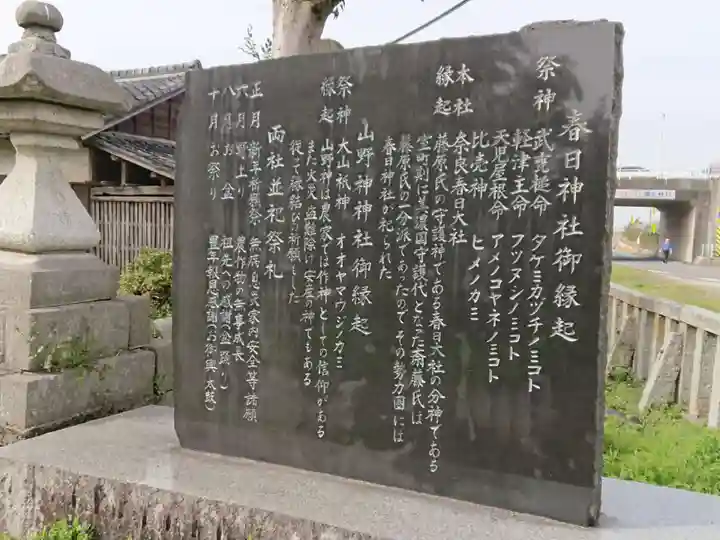 春日神社御縁起
祭神 武甕槌命 タケミカヅチノミコト
軽津主命 フツヌシノミコト
天児屋根命 アメノコヤネノミコト
比売神 ヒメノカミ
本社 奈良春日大社
縁起 藤原氏の守護神である春日大社の分神である
室町期に美濃国守護代となった斎藤氏は
藤原氏の一分派であったのでその勢力圏には
春日神社が祀られた
山野神神社御縁起
祭神 大山祇神 オオヤマツジノカミ
縁起 山野神は農家では作神としての信仰がある
また火災 盗難除け 安産の神でもある
従って縁結びの祈願もした
両社並祀祭礼
正月 新年祈願祭 無病息災家内安全等諸願
六月 野上り 農作物の無事成長
八月 お盆 祖先への感謝(盆踊り)
十月 お祭り 豊年報恩感謝(お御輿、太鼓)